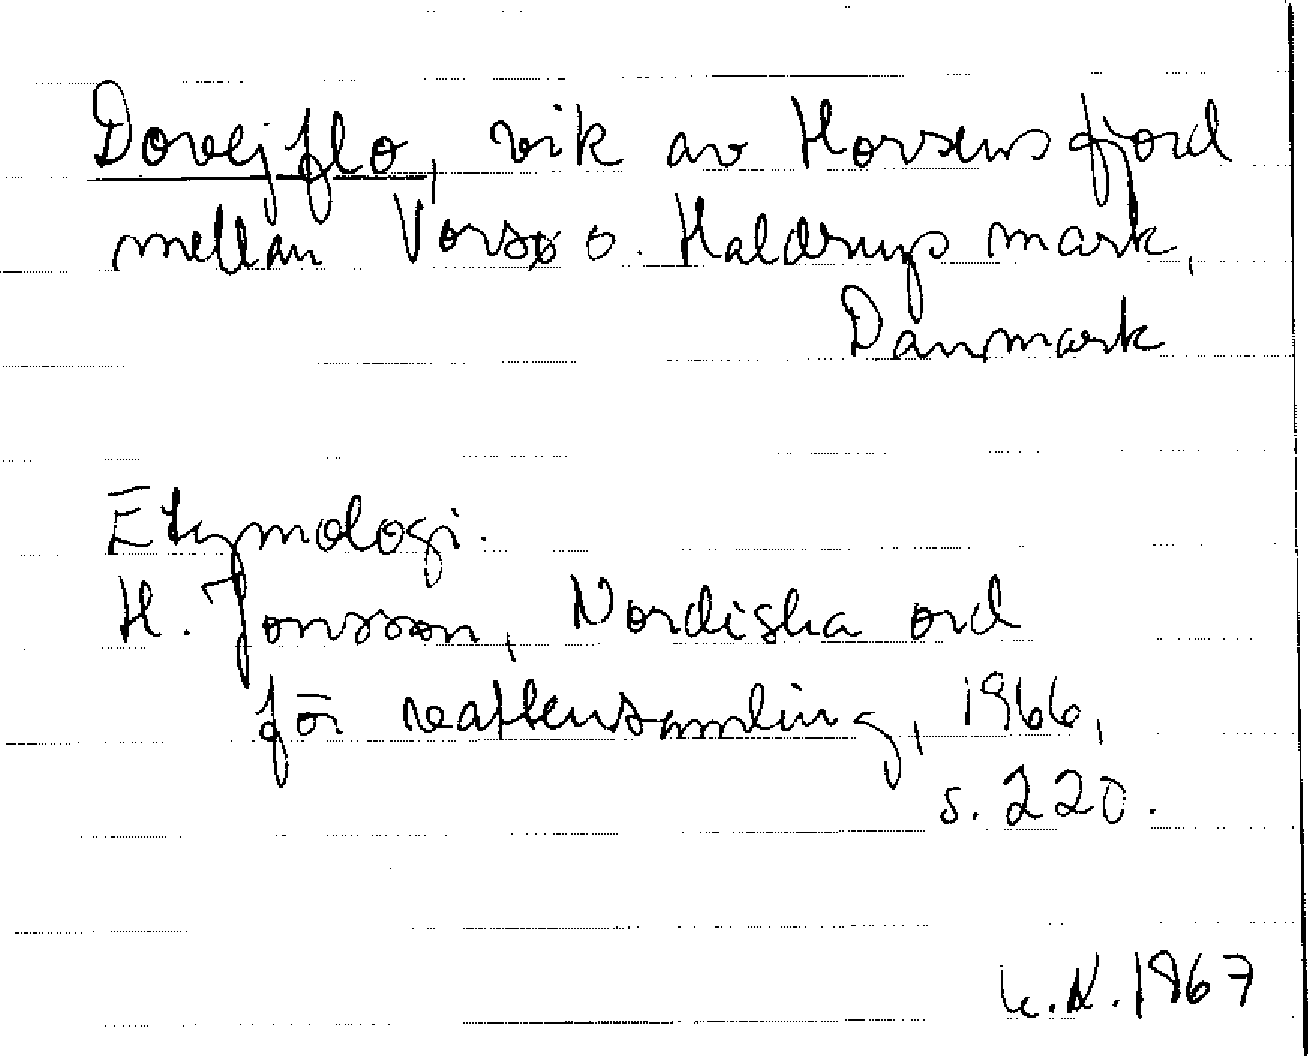 Dovejflo, vik av Horsens fjord
mellan Vorsø o. Haldrup mark,
Danmark
Etymologi.
H. Jonsson, Nordiska ord
för vattensamling, 1966,
s. 220.
K.N. 1967